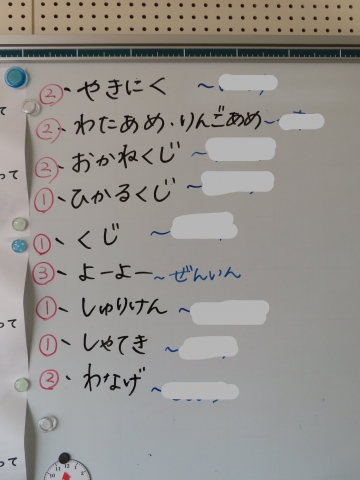 ② ・ やきにく ~
② ・ わたあめ・りんごあめ~
② ・ おかねくじ ~
① ・ ひかるくじ ~
① ・ くじ ~
③ ・ よーよー ~ぜんいん
① ・ しゅりけん ~
① ・ しゃてき ~
② ・ わなげ ~
って
って
って